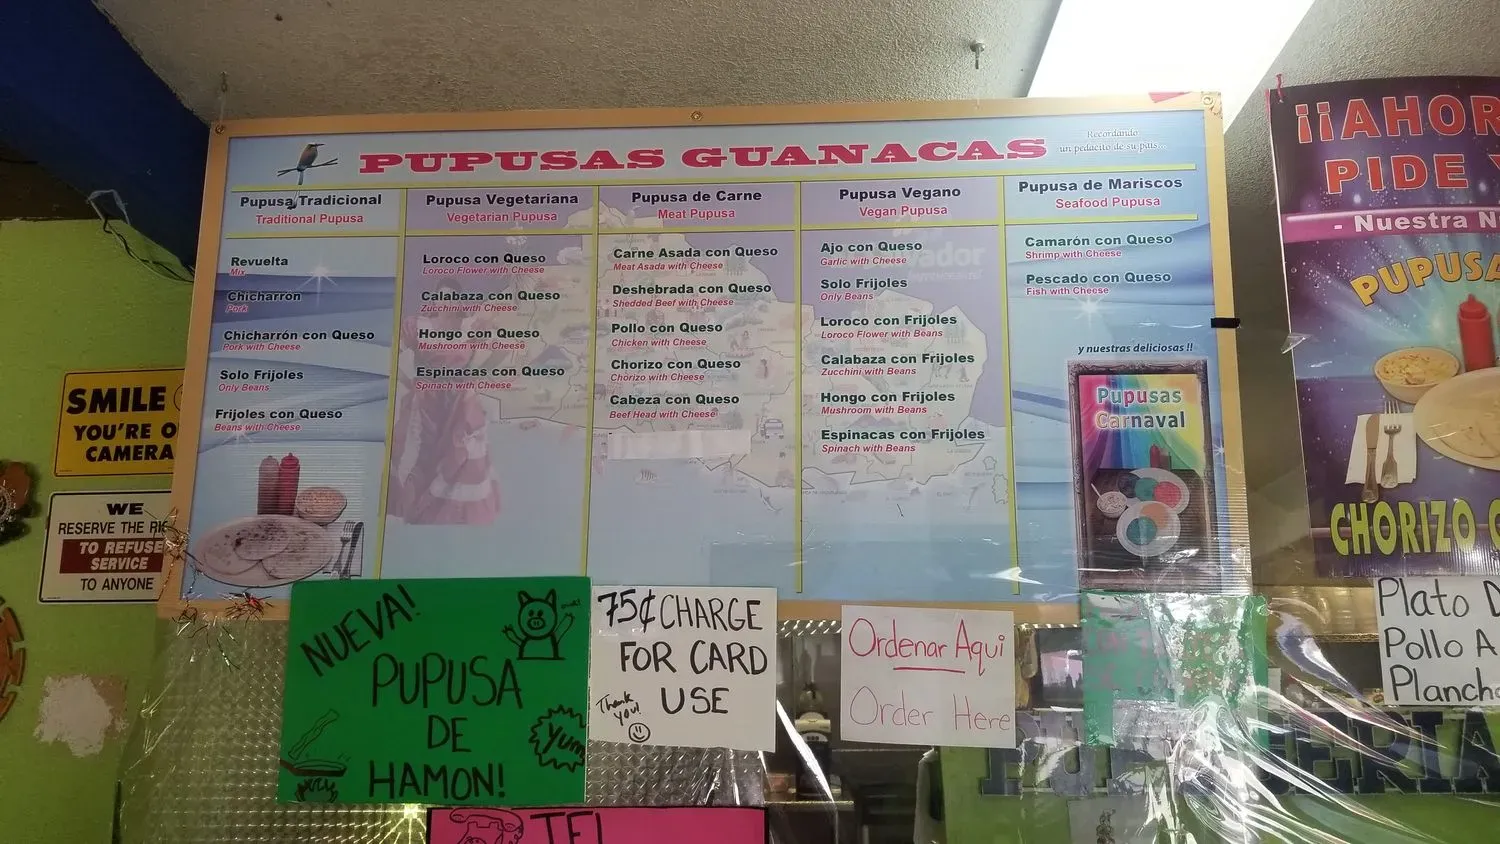 PUPUSAS GUANACAS
Recordando
un pedacito de su pais...
Pupusa Tradicional
Traditional Pupusa
Revuelta
Mix
Chicharron
Pork
Chicharrón con Queso
Pork with Cheese
Solo Frijoles
Only Beans
Frijoles con Queso
Beans with Cheese
Pupusa Vegetariana
Vegetarian Pupusa
Loroco con Queso
Loroco Flower with Cheese
Calabaza con Queso
Zucchini with Cheese
Hongo con Queso
Mushroom with Cheese
Espinacas con Queso
Spinach with Cheese
Pupusa de Carne
Meat Pupusa
Carne Asada con Queso
Meat Asada with Cheese
Deshebrada con Queso
Shedded Beef with Cheese
Pollo con Queso
Chicken with Cheese
Chorizo con Queso
Chorizo with Cheese
Cabeza con Queso
Beef Head with Cheese
Pupusa Vegano
Vegan Pupusa
Ajo con Queso
Garlic with Cheese
Solo Frijoles
Only Beans
Loroco con Frijoles
Loroco Flower with Beans
Calabaza con Frijoles
Zucchini with Beans
Hongo con Frijoles
Mushroom with Beans
Espinacas con Frijoles
Spinach with Beans
Pupusa de Mariscos
Seafood Pupusa
Camarón con Queso
Shrimp with Cheese
Pescado con Queso
Fish with Cheese
y nuestras deliciosas !!
Pupusas
Carnaval
¡¡AHOR
PIDE Y
- Nuestra N
PUPUSA
CHORIZO
SMILE
YOU'RE O
CAMERA
WE
RESERVE THE RIG
TO REFUSE
SERVICE
TO ANYONE
NUEVA!
PUPUSA
DE
HAMON!
Yum
75¢ CHARGE
FOR CARD
USE
Thank
you!
Ordenar Aqui
Order Here
Plato D
Pollo A
Plancha
PUPUSERIA
TEL